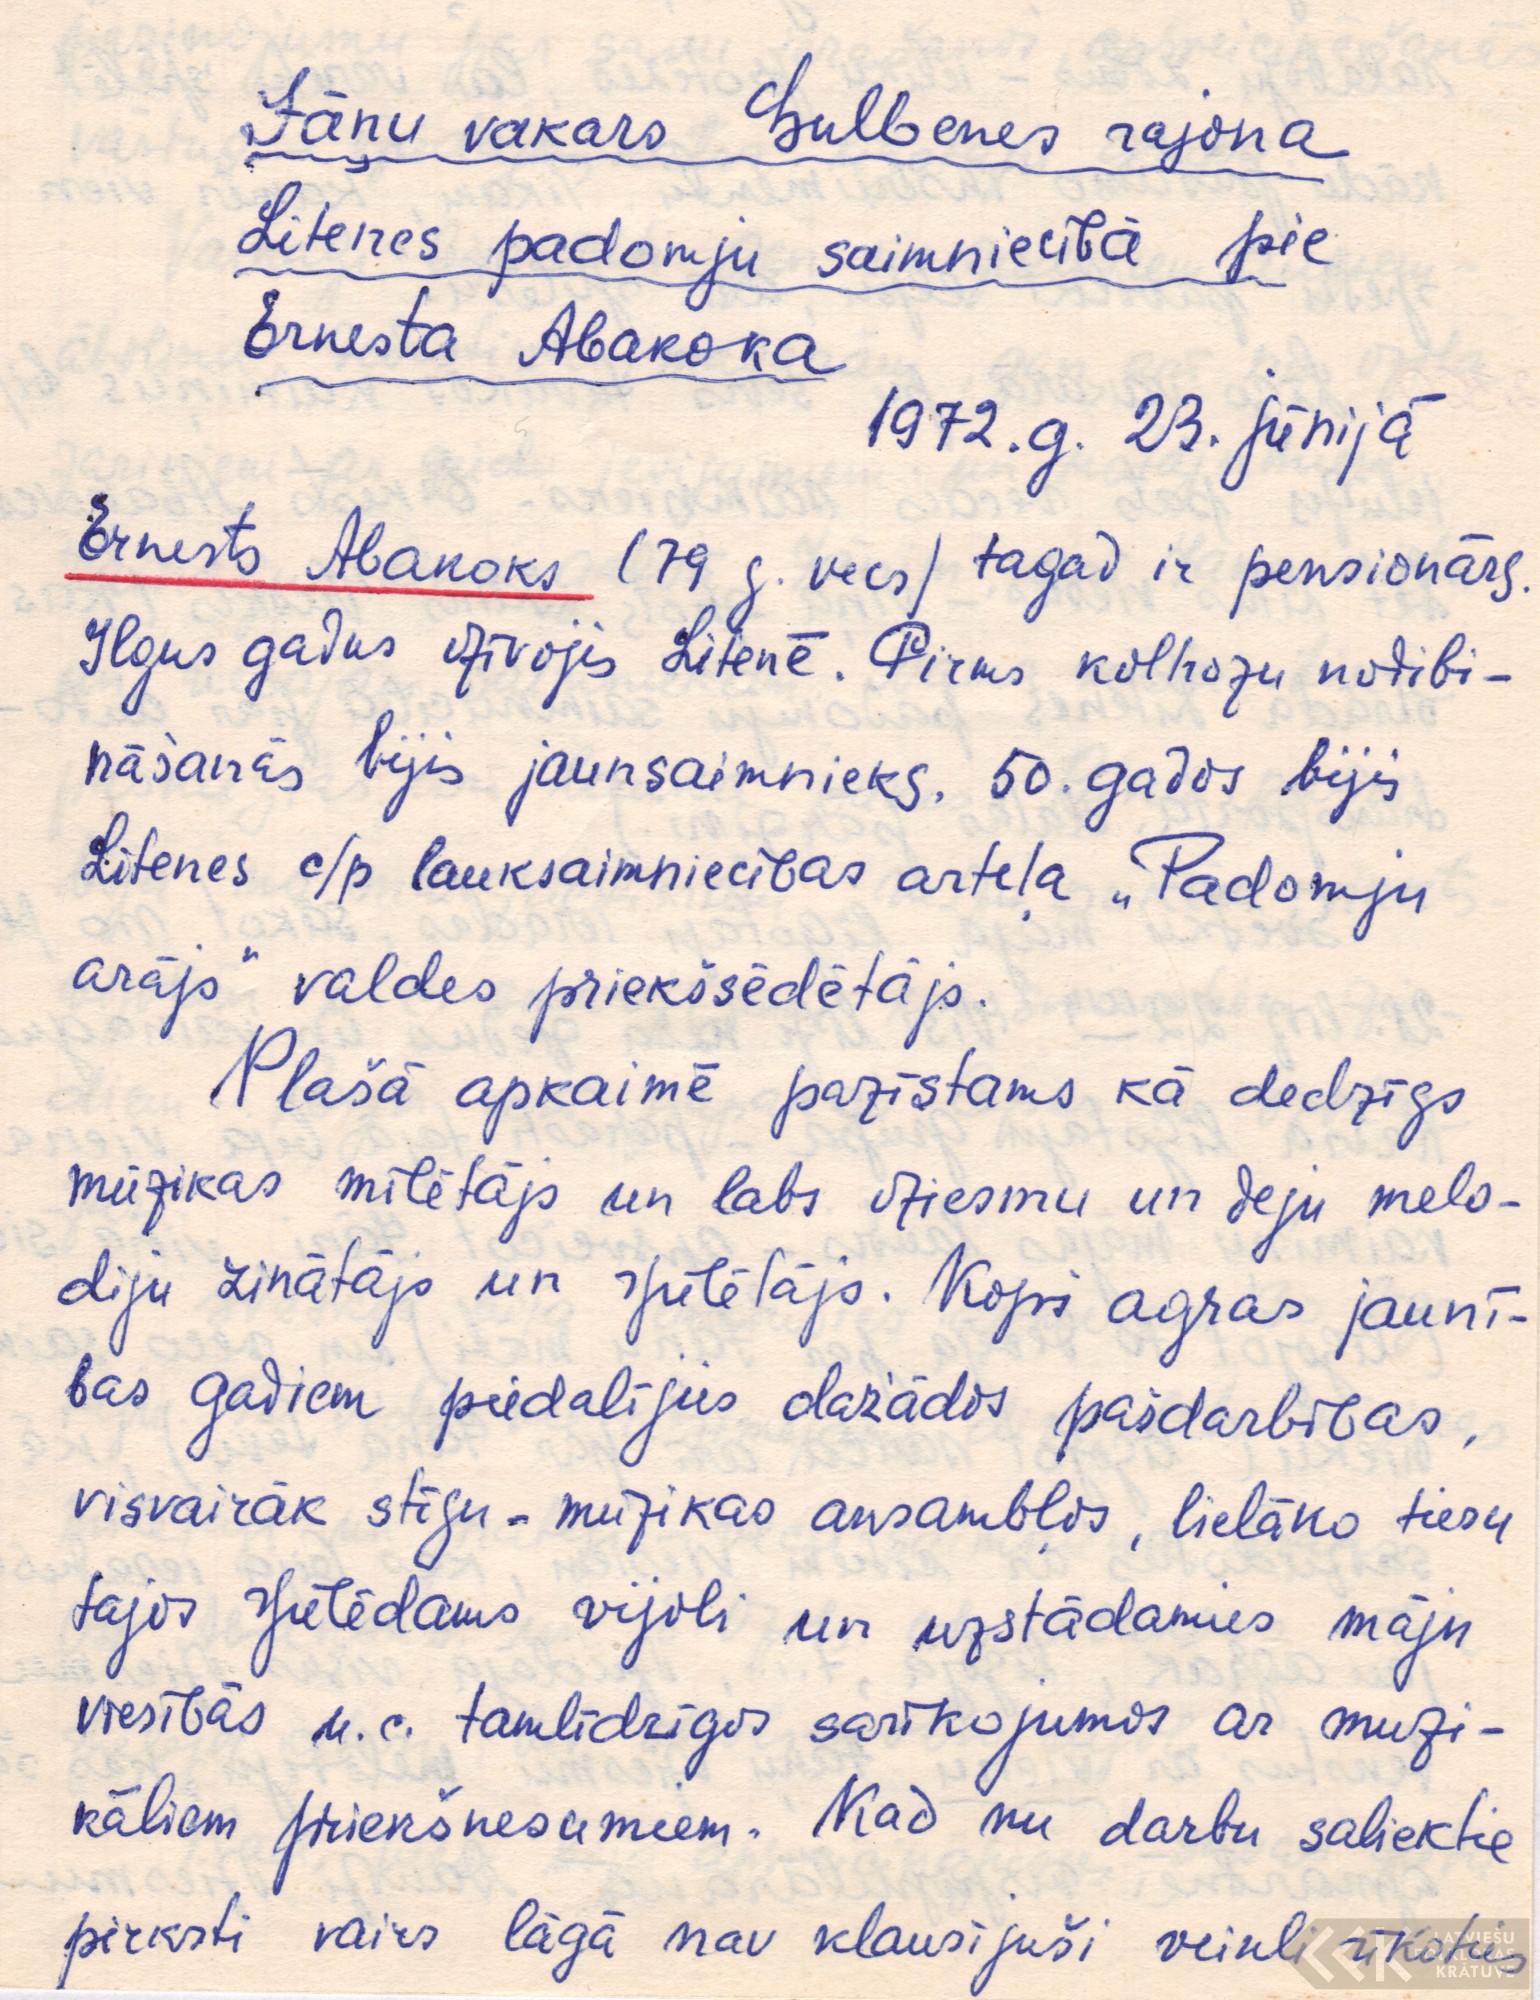 Jāņu vakars Gulbenes rajona
Litenes padomju saimniecībā pie
Ernesta Abakoka
1972.g. 23. jūnijā
Ernests Abakoks (79 g. vecs) tagad ir pensionārs.
Ilgus gadus dzīvojis Litenē. Pirms kolhozu nodibi-
nāšanās bijis jaunsaimnieks. 50. gados bijis
Litenes c/p lauksaimniecības arteļa „Padomju
arājs" valdes priekšsēdētājs.
Plašā apkaimē pazīstams kā dedzīgs
mūzikas mīlētājs un labs dziesmu un deju melo-
diju zinātājs un spēlētājs. Kopš agras jaunī-
bas gadiem piedalījies dažādos pašdarbības,
visvairāk stīgu-mūzikas ansambļos, lielāko tiesu
tajos spēlēdams vijoli un uzstādamies māju
viesībās u.c. tamlīdzīgos sarīkojumos ar muzi-
kāliem priekšnesumiem. Kad nu darbu saliektie
pirksti vairs lāgā nav klausījuši veikli rīkoties
LATVIEŠU
FOLKLORAS
KRĀTUVE